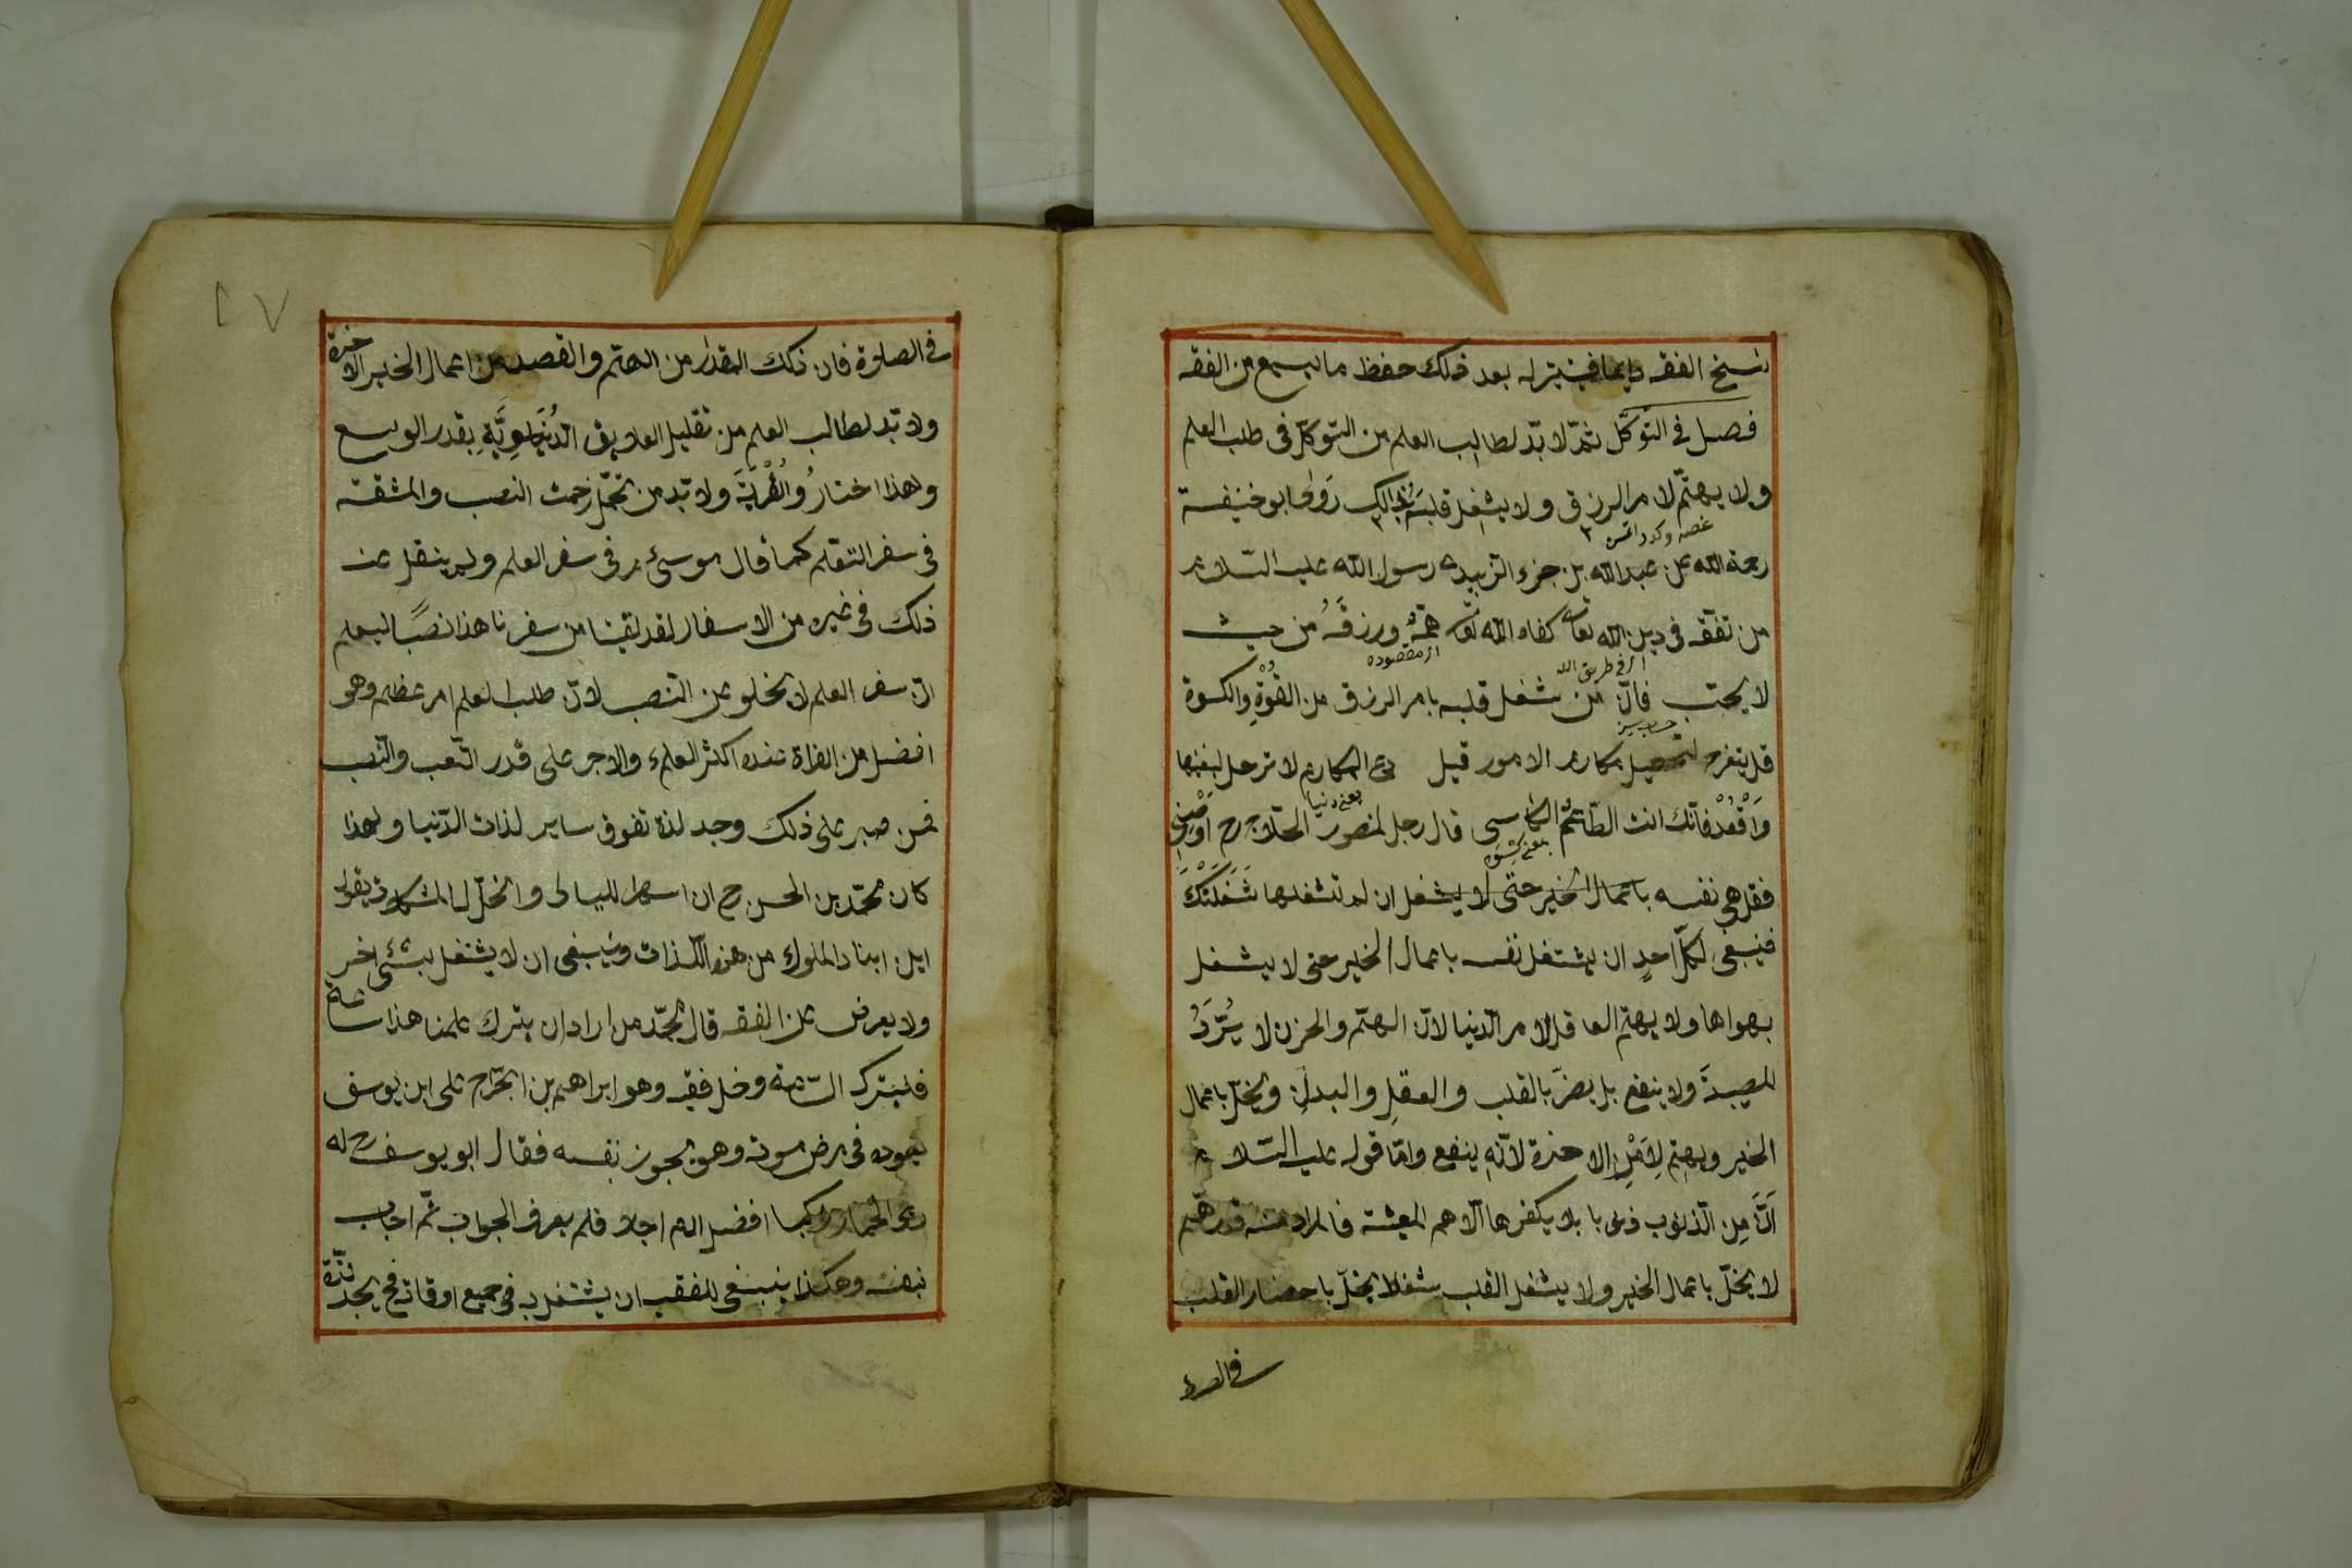 نسخ الفقه دايما فيتيسر له بعد ذلك حفظ ما يسمع من الفقه
فصل فى التوكّل ثمّ لا بدّ لطالب العلم من التوكّل فى طلب العلم
ولا يهتمّ لامر الرزق ولا يشغل قلبه بذالك رَوٰى ابو حنيفة
غصه وكدر
رحمة الله عن عبد الله بن جزء الزبيدى رسول الله عليه السّلام
من تفقّه فى دين الله تعا كفاه الله تعا همّهُ ورزقَهُ من حيث
اى فى طريق الله
اى مقصوده
لا يحتسب فانّ من شغل قلبه بامر الرزق من القُوّةِ والكسوة
قل يتفرح لتحصيل مكارم الامور قيل دع المكارم لا ترحل لبغيتها
يعنى دنيا
وَاقْعُدْ فانّك انت الطّاعم الكاسى قال رجل لمنصور الحلّاج رح اوصنى
فقل هى نفسه باعمال الخير حتّى لا يشغل ان لم تشغلها شَغَلَتْكَ
فينبغى لكلّ احدٍ ان يشتغل نفسه باعمال الخير حتى لا يشغل
بهواها ولا يهتم العاقل لامر الدّنيا لانّ الهمّ والحزن لا يَرُدُّ
المصيبةَ ولا ينفع بل يضرّ بالقلب والعقلِ والبدنِ ويخلّ باعمال
الخير ويهتم لِامْرِ الاخرة لانّه ينفع وامّا قوله عليه السّلام
انّ مِن الذّنوب ذنوبا لا يكفرها الّا هم المعيشة فالمراد منه قدر همّ
لا يخلّ باعمال الخير ولا يشغل القلب شغلا يخلّ باحضار القلب
فى الصلوة
فى الصلوة فان ذلك المقدار من الهمّ والقصد من اعمال الخير الاخرة
ولا بّد لطالب العلم من تقليل العلايق الدُّنياوِيَّةِ بقدر الوسع
ولهذا اختارُوا الْغُرْبَةَ ولا بّد من تحمّل زحمت النصب والمشقة
فى سفر التعلم كما قال موسىٰ م فى سفر العلم ولم ينقل عنه
ذلك فى غيره من الاسفار لقد لقينا من سفرنا هذا نصبًا ليعلم
انّ سفر العلم لا يخلو عن النّصب لانّ طلب العلم امر عظيم وهو
افضل من الغزاة عنده اكثر العلماء والاجر على قدر التّعب والنّصب
فمن صبر على ذلك وجد لذة تفوق ساير لذات الدّنيا ولهذا
كان محمّد بن الحسن رح ان اسهر الليالى وانحلّ له المشكلات يقول
اين ابناء الملوك من هذه اللّذات وينبغى ان لا يشتغل بشئ اخر
ولا يعرض عن الفقه قال محمّد من اراد ان يترك علمنا هذا ساعة
فليترك السّاعة ودخل فقيه وهو ابراهيم بن الجرّاح على ابى يوسف
يعوده فى مرض موته وهو يجود نفسه فقال ابو يوسف رح له
رمى الجمار راكبا افضل ام راجلا فلم يعرف الجواب ثمّ اجاب
نفسه وهكذا ينبغى للفقيه ان يشتغل به فى جميع اوقاته فح يجد لذّة